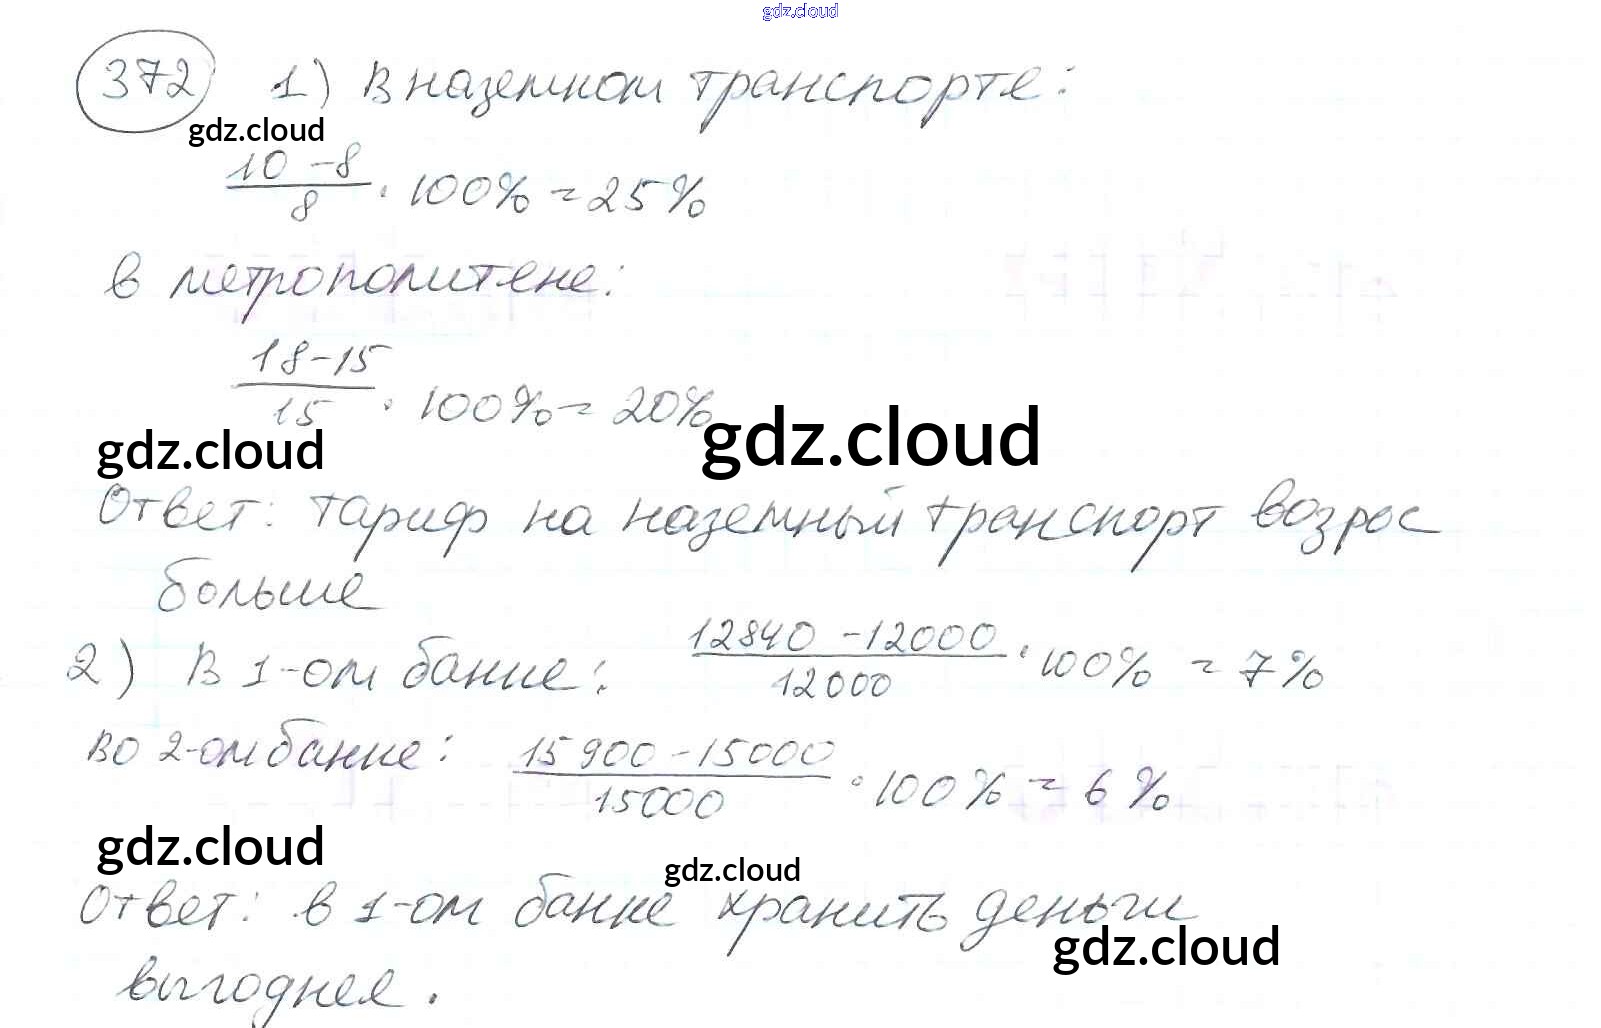 gdz.cloud
372 1) В наземном транспорте:
gdz.cloud
10 - 8
/ 8 · 100% = 25%
в метрополитене:
18 - 15
/ 15 · 100% = 20%
gdz.cloud gdz.cloud
Ответ: тариф на наземный транспорт возрос
больше
2) В 1-ом банке: 12840 - 12000 / 12000 · 100% = 7%
во 2-ом банке: 15900 - 15000 / 15000 · 100% = 6%
gdz.cloud gdz.cloud
Ответ: в 1-ом банке хранить деньги
gdz.cloud
выгоднее.